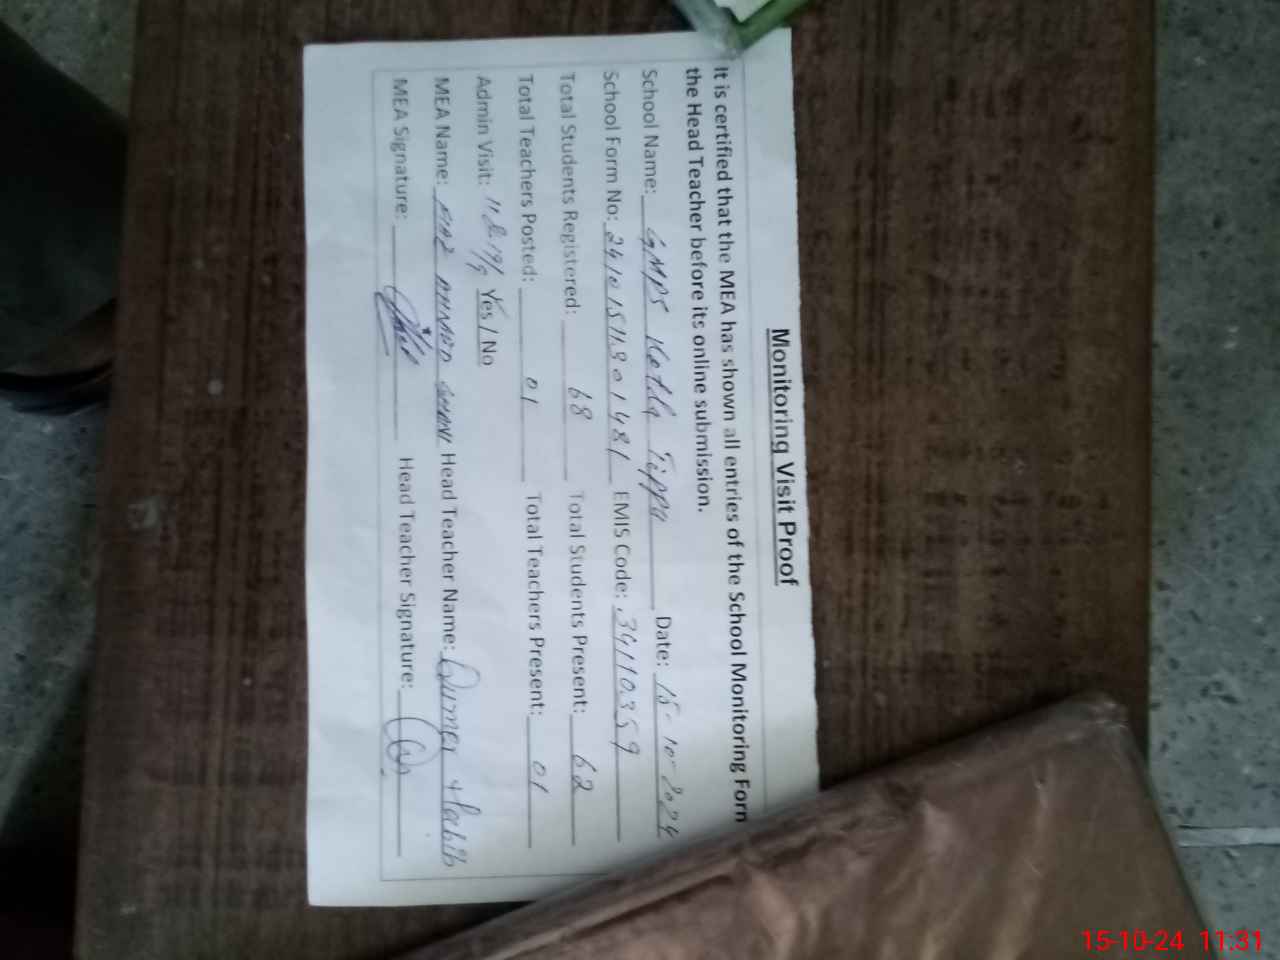 Monitoring Visit Proof
It is certified that the MEA has shown all entries of the School Monitoring Form
the Head Teacher before its online submission.
School Name: GMPS Kotla Tippu Date: 15-10-2024
School Form No: EMIS Code: 39110359
Total Students Registered: 68 Total Students Present: 62
Total Teachers Posted: 01 Total Teachers Present: 01
Admin Visit: Yes / No
MEA Name: AHMAD GHANI Head Teacher Name: Qumer Habib
MEA Signature: Head Teacher Signature:
15-10-24 11:31